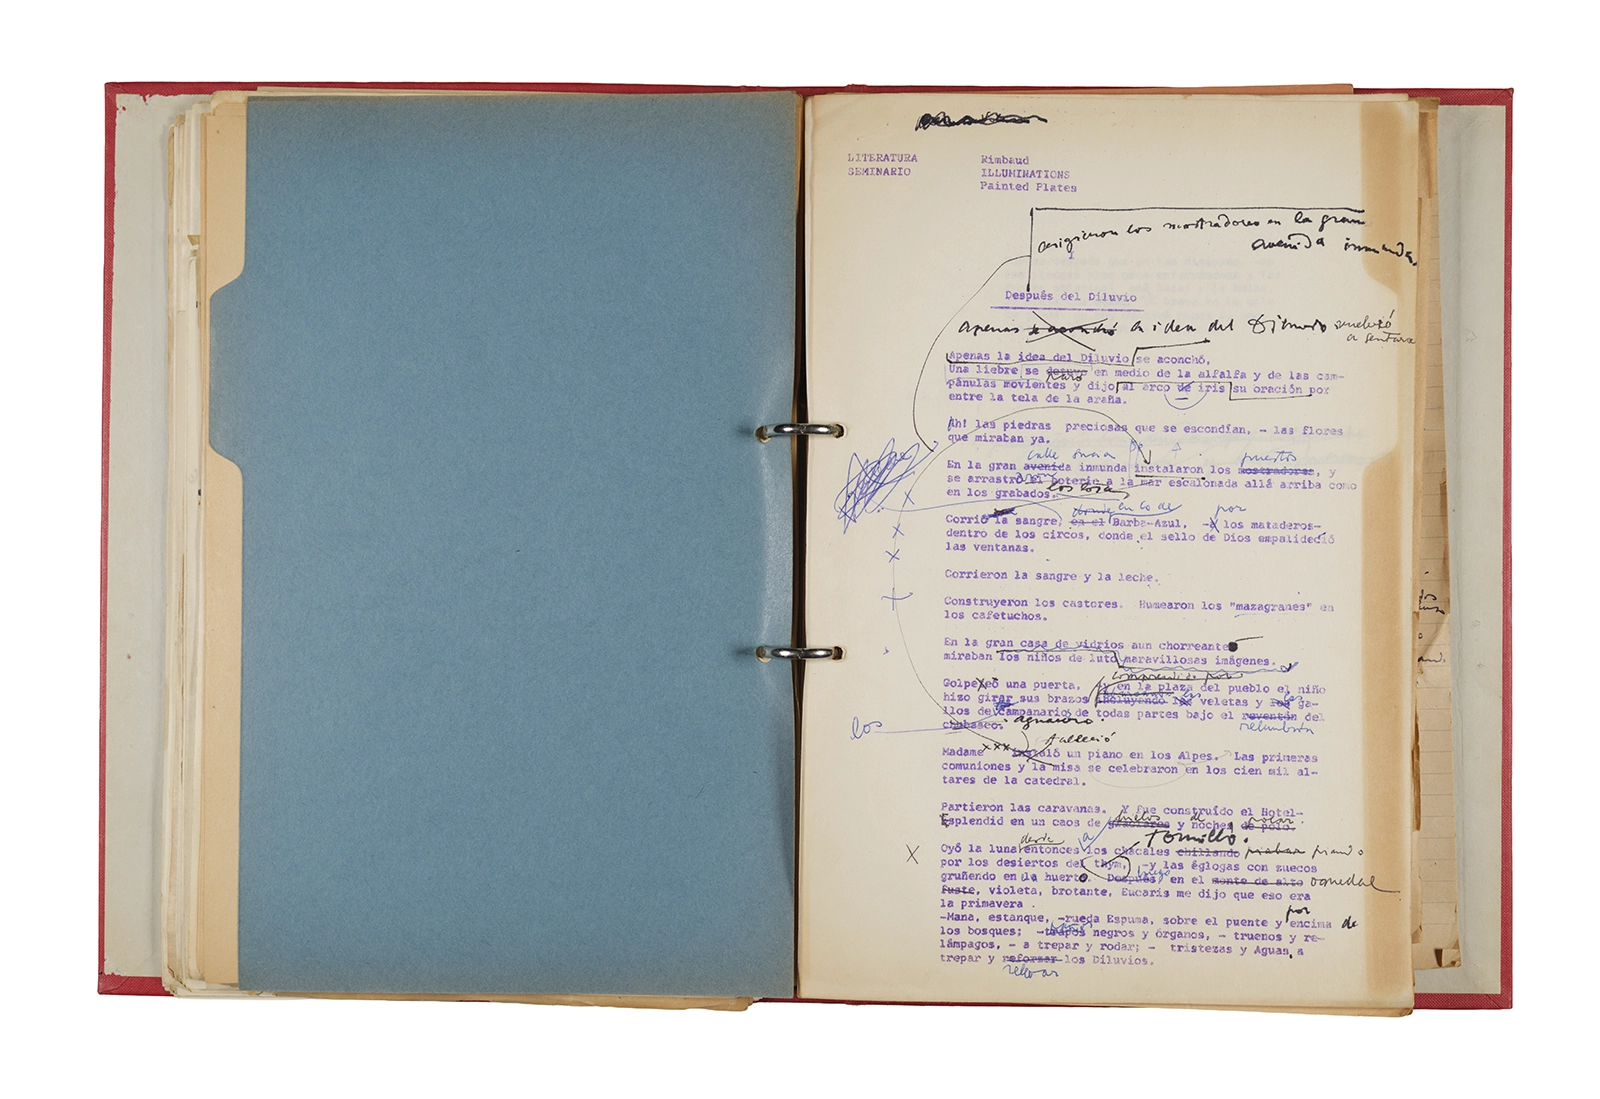 LITERATURA
SEMINARIO
Rimbaud
ILLUMINATIONS
Painted Plates
erigieron los mostradores en la gran
avenida inmunda.
Después del Diluvio
Apenas se aconchó la idea del Diluvio
a sentarse
Apenas la idea del Diluvio se aconchó,
Una liebre se detuvo en medio de la alfalfa y de las cam-
paró
pánulas movientes y dijo al arco de iris su oración por
entre la tela de la araña.
Ah! las piedras preciosas que se escondían, - las flores
que miraban ya.
calle sucia
puestos
En la gran avenida inmunda instalaron los mostradores, y
se arrastró el boterio a la mar escalonada allá arriba como
en los grabados.
por
Corrió la sangre, en el Barba-Azul, - los mataderos-
dentro de los circos, donde el sello de Dios empalideció
las ventanas.
Corrieron la sangre y la leche.
Construyeron los castores. Humearon los "mazagranes" en
los cafetuchos.
En la gran casa de vidrios aun chorreante
miraban los niños de luto maravillosas imágenes.
comprendido por
Golpeó una puerta, -y en la plaza del pueblo el niño
hizo girar sus brazos incluyendo las veletas y los ga-
llos de campanario de todas partes bajo el reventón del
los
chubasco. aguacero.
relumbrón
Madame xxx instaló un piano en los Alpes. Las primeras
comuniones y la misa se celebraron en los cien mil al-
tares de la catedral.
Partieron las caravanas. Y fue construído el Hotel-
Esplendid en un caos de glaciares y noches de polo.
hielos de polar.
desde a Tomillo.
Oyó la luna entonces los chacales chillando piando
por los desiertos del thym, -y las églogas con zuecos
gruñendo en la huerto. Después en el monte de alto
luego
fuste, violeta, brotante, Eucaris me dijo que eso era
la primavera .
por
-Mana, estanque, -rueda Espuma, sobre el puente y encima de
los bosques; -trapos negros y órganos, - truenos y re-
lámpagos, - a trepar y rodar; - tristezas y Aguas, a
trepar y reforzar los Diluvios.